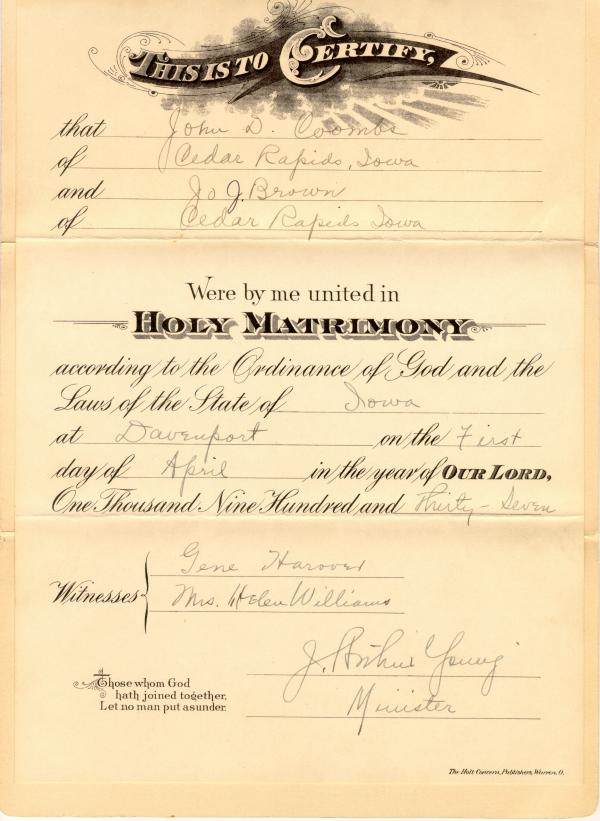 THIS IS TO CERTIFY,
that John D. Coombs
of Cedar Rapids, Iowa
and Jo J. Brown
of Cedar Rapids Iowa
Were by me united in
HOLY MATRIMONY
according to the Ordinance of God and the
Laws of the State of Iowa
at Davenport on the First
day of April in the year of OUR LORD,
One Thousand Nine Hundred and Thirty-Seven
Witnesses
Gene
Mrs. Helen Williams
J. Arthur Young
Minister
Those whom God
hath joined together,
Let no man put asunder.
The Holt Concern, Publishers, Warren, O.